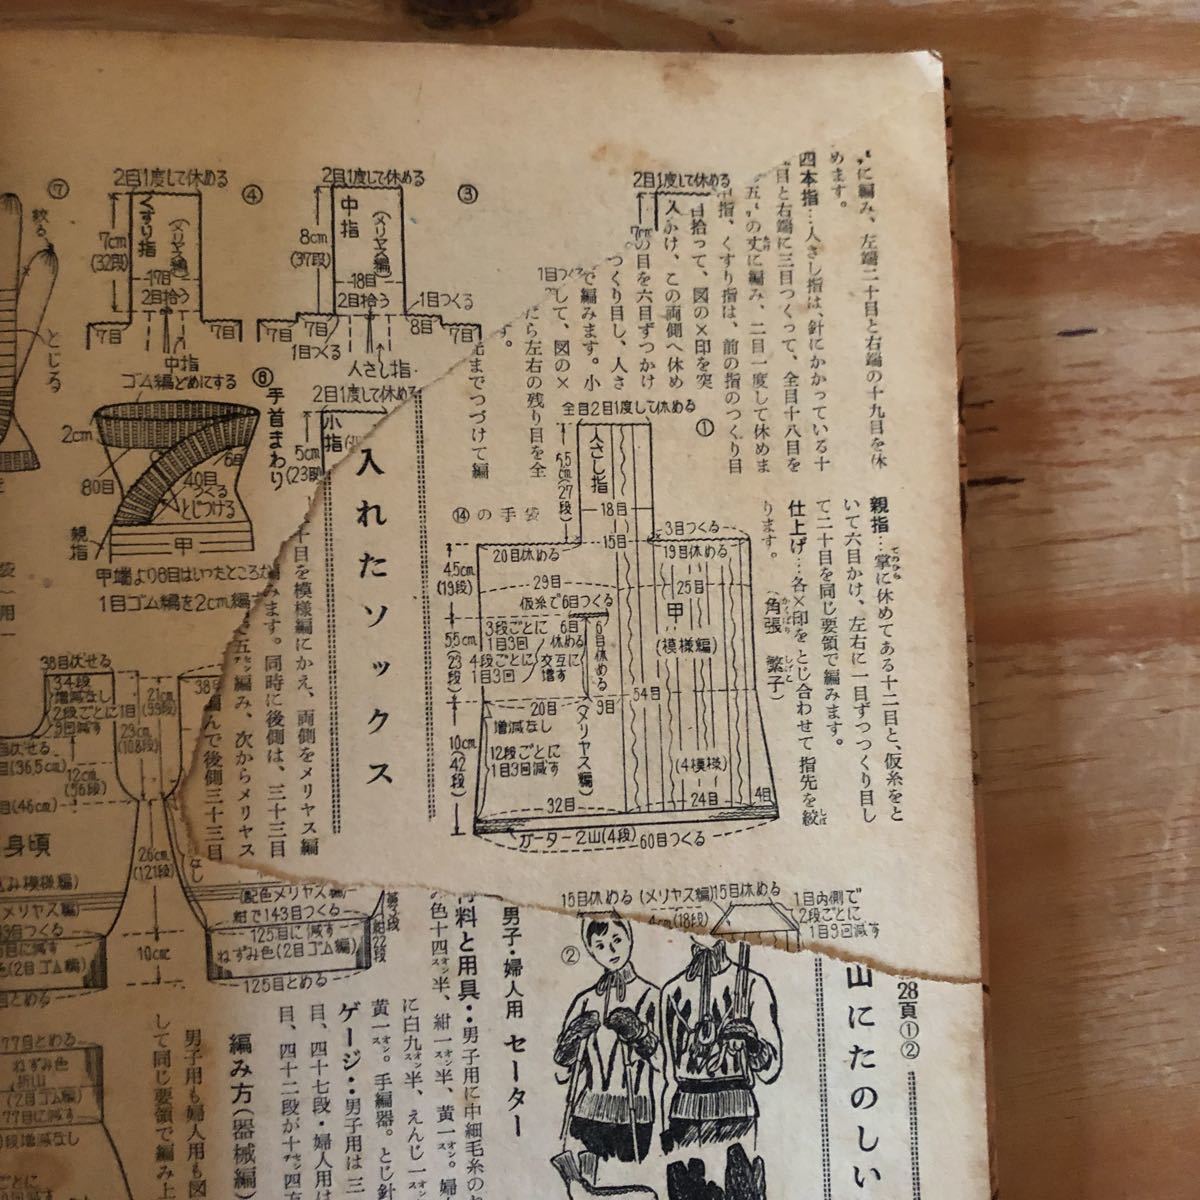 に編み、左端二十目と右端の十九目を休
めます。
四本指…人さし指は、針にかかっている十
目と右端に三目つくって、全目十八目を
の丈に編み、二目一度して休めま
指、くすり指は、前の指のつくり目
目拾って、図の×印を突
かけ、この両側へ休め
の目を六目ずつかけ
つくり目し、人さ
で編みます。小
して、図の×
たら左右の残り目を全
先までつづけて編
す。
親指…掌に休めてある十二目と、仮糸をと
てのひら
いて六目かけ、左右に一目ずつつくり目し
て二十目を同じ要領で編みます。
仕上げ…各×印をとじ合わせて指先を絞
しぼ
ります。
(角張 繁子)
かくばり しげこ
⑭の手袋
①
全目2目1度して休める
人さし指
5.5cm(27段)
18目
15目
3目つくる
20目休める
19目休める
4.5cm(19段)
29目
25目
仮糸で6目つくる
甲
(模様編)
3段ごとに
1目3回
4段ごとに
1目3回
6目
休める
交互に
増す
6目休める
5.5cm(23段)
54目
20目
9目
増減なし
12段ごとに
1目3回減す
メリヤス編
10cm(42段)
(4模様)
32目
24目
4目
ガーター2山(4段)
60目つくる
2目1度して休める
7cm
③
2目1度して休める
中指
(メリヤス編)
8cm(37段)
18目
2目拾う
1目つくる
7目
7目
8目
7目
1目つくる
人さし指
④
2目1度して休める
くすり指
(メリヤス編)
7cm(32段)
17目
2目拾う
7目
7目
中指
2目1度して休める
小指
5cm(23段)
⑦
絞る
とじる
⑧
ゴム編どめにする
手首まわり
2cm
6目
80目
40目
つくる
とじつける
親指
甲
甲端より8目はいったところか
1目ゴム編を2cm編
入れたソックス
十目を模様編にかえ、両側をメリヤス編
みます。同時に後側は、三十三目
編み、次からメリヤス
んで後側三十三目
38目伏せる
34段
増減なし
2段ごとに1目
9回減す
21cm(99段)
23cm(108段)
12cm(56段)
目(36.5cm)
目(46cm)
26cm(121段)
身頃
(配色メリヤス編)
紺で143目つくる
125目に減す
ねずみ色(2目ゴム編)
10cm
125目とめる
15目休める
(メリヤス編)
15目休める
4cm(18段)
1目内側で
2段ごとに
1目9回減す
②
28頁①②
山にたのしい
男子・婦人用 セーター
料と用具…男子用に中細毛糸の
み色十四オンス半、紺一オンス半、黄一オンス。婦
に白九オンス半、えんじ一オンス
黄一オンス。手編器。とじ針
ゲージ…男子用は三
目、四十七段・婦人用は
目、四十二段が十センチ四方
編み方(器械編)
男子用も婦人用も図
して同じ要領で編み上
77目とめる
ねずみ色
折山
(2目ゴム編)
77目に減す
増減なし